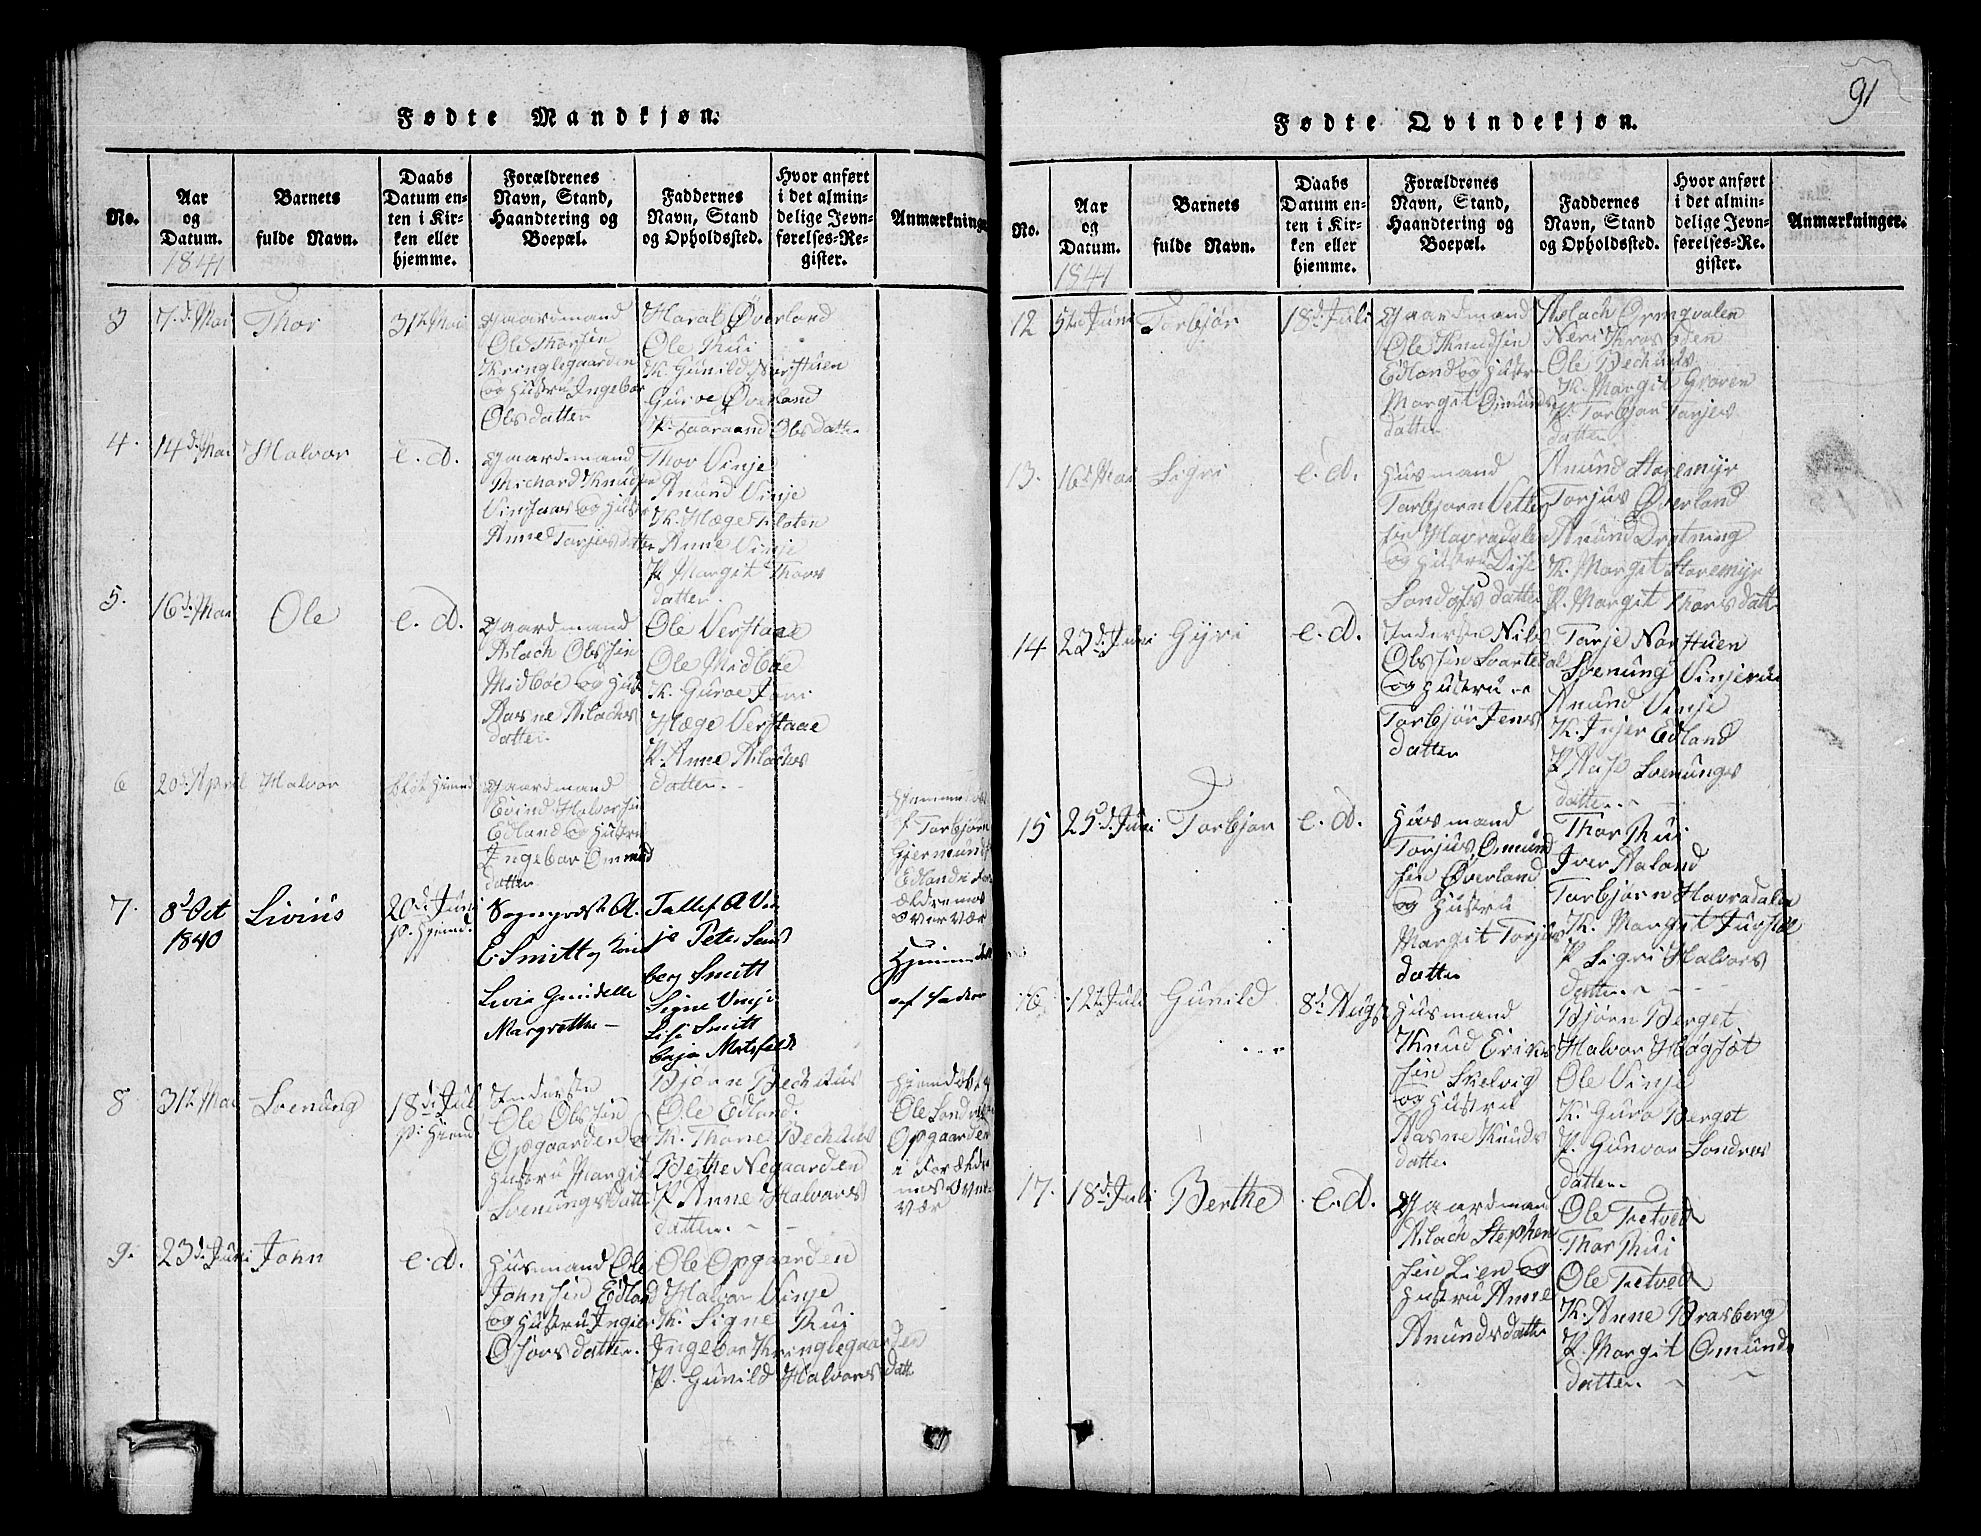 91
Fødte Mandkjøn.
No.
Aar
og
Datum.
1841
Barnets
fulde Navn.
Daabs
Datum en-
ten i Kir-
ken eller
hjemme.
Forældrenes
Navn, Stand,
Haandtering og
Boepæl.
Faddernes
Navn, Stand
og Opholdssted.
Hvor anført
i det almin-
delige Jevn-
førelses-Re-
gister.
Anmærkninger
3
7d. Mai
Thor
31te Mai
Gaardmand
Ole Thorsen
Kringlegaarden
og Hustru Ingebor
Olsdatter
Øverland
Ole Thui
K. Gunild Norstuen
Guroe Øverland
P. Aaraand Olsdatter
4.
14d. Mai
Halvor
e. d.
Gaardmand
Knudsen
og Hustr
Anne Torjersdatter
Thor Vinje
Anund Vinje
K. Hæge Floten
Anne Vinje
P. Margit Thors
datter.
5.
16d. Mai
Ole
e. d.
Gaardmand
Aslach Olssen
Midbøe og Hust
Aasne Aslachs
datter.
Ole Verstaae
Ole Midbøe
K. Guroe
Hæge Verstaae
P. Anne Aslachs
datter.
6
20d. April
Halvor
Gaardmand
Eivind Halvorsen
Edland og Hustru
Ingebor
datter
Torbjørn
Edland i For
ældrenes
overvær
7.
8d Oct
1840
Livius
20d. Juni
p. Hjemd.
Sogneprest A.
E. Smitt og Kone
Livia Gunielle
Margrethe
Tallef A Vin
je Peter Sand
berg Smitt
Signe Vinje
Lise Smitt
Hjemmedøbt
af Fader
8
31te Mai
Svenung
18d. Juli
p. Hjemd.
Inderste
Ole Olssen
Opegaarden og
Hustru Margit
Svenungsdatt
Bjørn Bechhus
Ole Edland.
K. Thone Bechhus
Bethe Negaarden
P. Anne Halvors
datter.
Hjemdøbt af
Ole
Opgaarden
i Forældre
nes Over
vær
9.
23d. Juni
John
e. d.
Husmand Ole
Johnsen Edland
og Hustru Ingier
Osorsdatter.
Ole Opgaarden
Halvor Vinje
K. Signe Thui
Ingebor Kringlegaarden
P. Gunild Halvors datt
Fødte Qvindekjøn.
No.
Aar
og
Datum.
1841
Barnets
fulde Navn.
Daabs
Datum en-
ten i Kir-
ken eller
hjemme.
Forældrenes
Navn, Stand,
Haandtering og
Boepæl.
Faddernes
Navn, Stand
og Opholdssted.
Hvor anført
i det almin-
delige Jevn-
førelses-Re-
gister.
Anmærkninger.
12
5te Juni
Torbjør
18d. Juli
Gaardmand
Ole Knudsen
Edland og Hustr
Margit Omunds
datter
Aslach Ormqvalen
Neri
Ole Bechhus
K. Margit Groven
P. Torbjør Torjers
datter
13.
16d. Mai
Sigri
e. d.
Husmand
Torbjørn Vetle
sen Havradalen
og Hustru
datter
Anund Storemyr
Torjus Øverland
Anund Drotning
K. Margit Storemyr
P. Margit Thorsdatt
14
23d. Juni
Gyri
e. d.
Indersten Nils
Olssen Svartedal
og Hustru
Torbjør Jens
datter
Torje Norstuen
Svenung
Anund Vinje
K. Edland
P. Aase Svenungs
datter.
15
25d. Juni
Torbjør
e. d.
Husmand
Torjus Omund
sen Øverland
og Hustru
Margit Torjus
datter
Thor Thui
Iver Aaland
Torbjørn Havradalen
K. Margit
P. Sigri Halvors
datter.
16
12te Juli
Gunild
8d Augst
Husmand
Knud Eriks
sen Skelvig
og Hustru
Aasne Knuds
datter
Bjørn Berget
Halvor Høgsæt
Ole Vinje
K. Guro Berget
P. Gunvor Sondres
datter.
17.
18d. Juli
Berthe
e. d.
Gaardmand
Aslach Stephen
sen Lien og
Hustru Anne
Anundsdatter
Ole Tretved
Thor Thui
Ole Tretved
K. Anne Brasberg
P. Margit Omunds
datter.